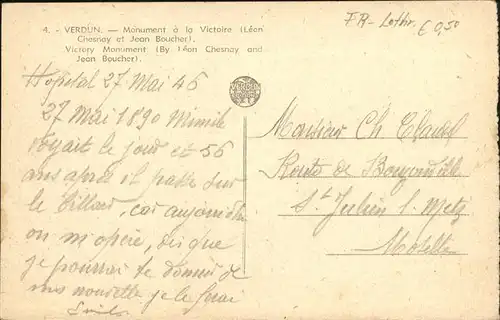 4. - VERDUN. — Monument à la Victoire (Léon
Chesnay et Jean Boucher).
Victory Monument (By Léon Chesnay and
Jean Boucher).
FR - Lothr. € 0,50
Hopital 27 Mai 46
27 Mai 1890 Mimile
voyait le jour et 56
ans après il passe sur
le billard, car aujourd'hui
on m'opère, dès que
je pourrai te donner de
mes nouvelle je le ferai
Monsieur Ch
Route de
St Julien l. Metz
Moselle